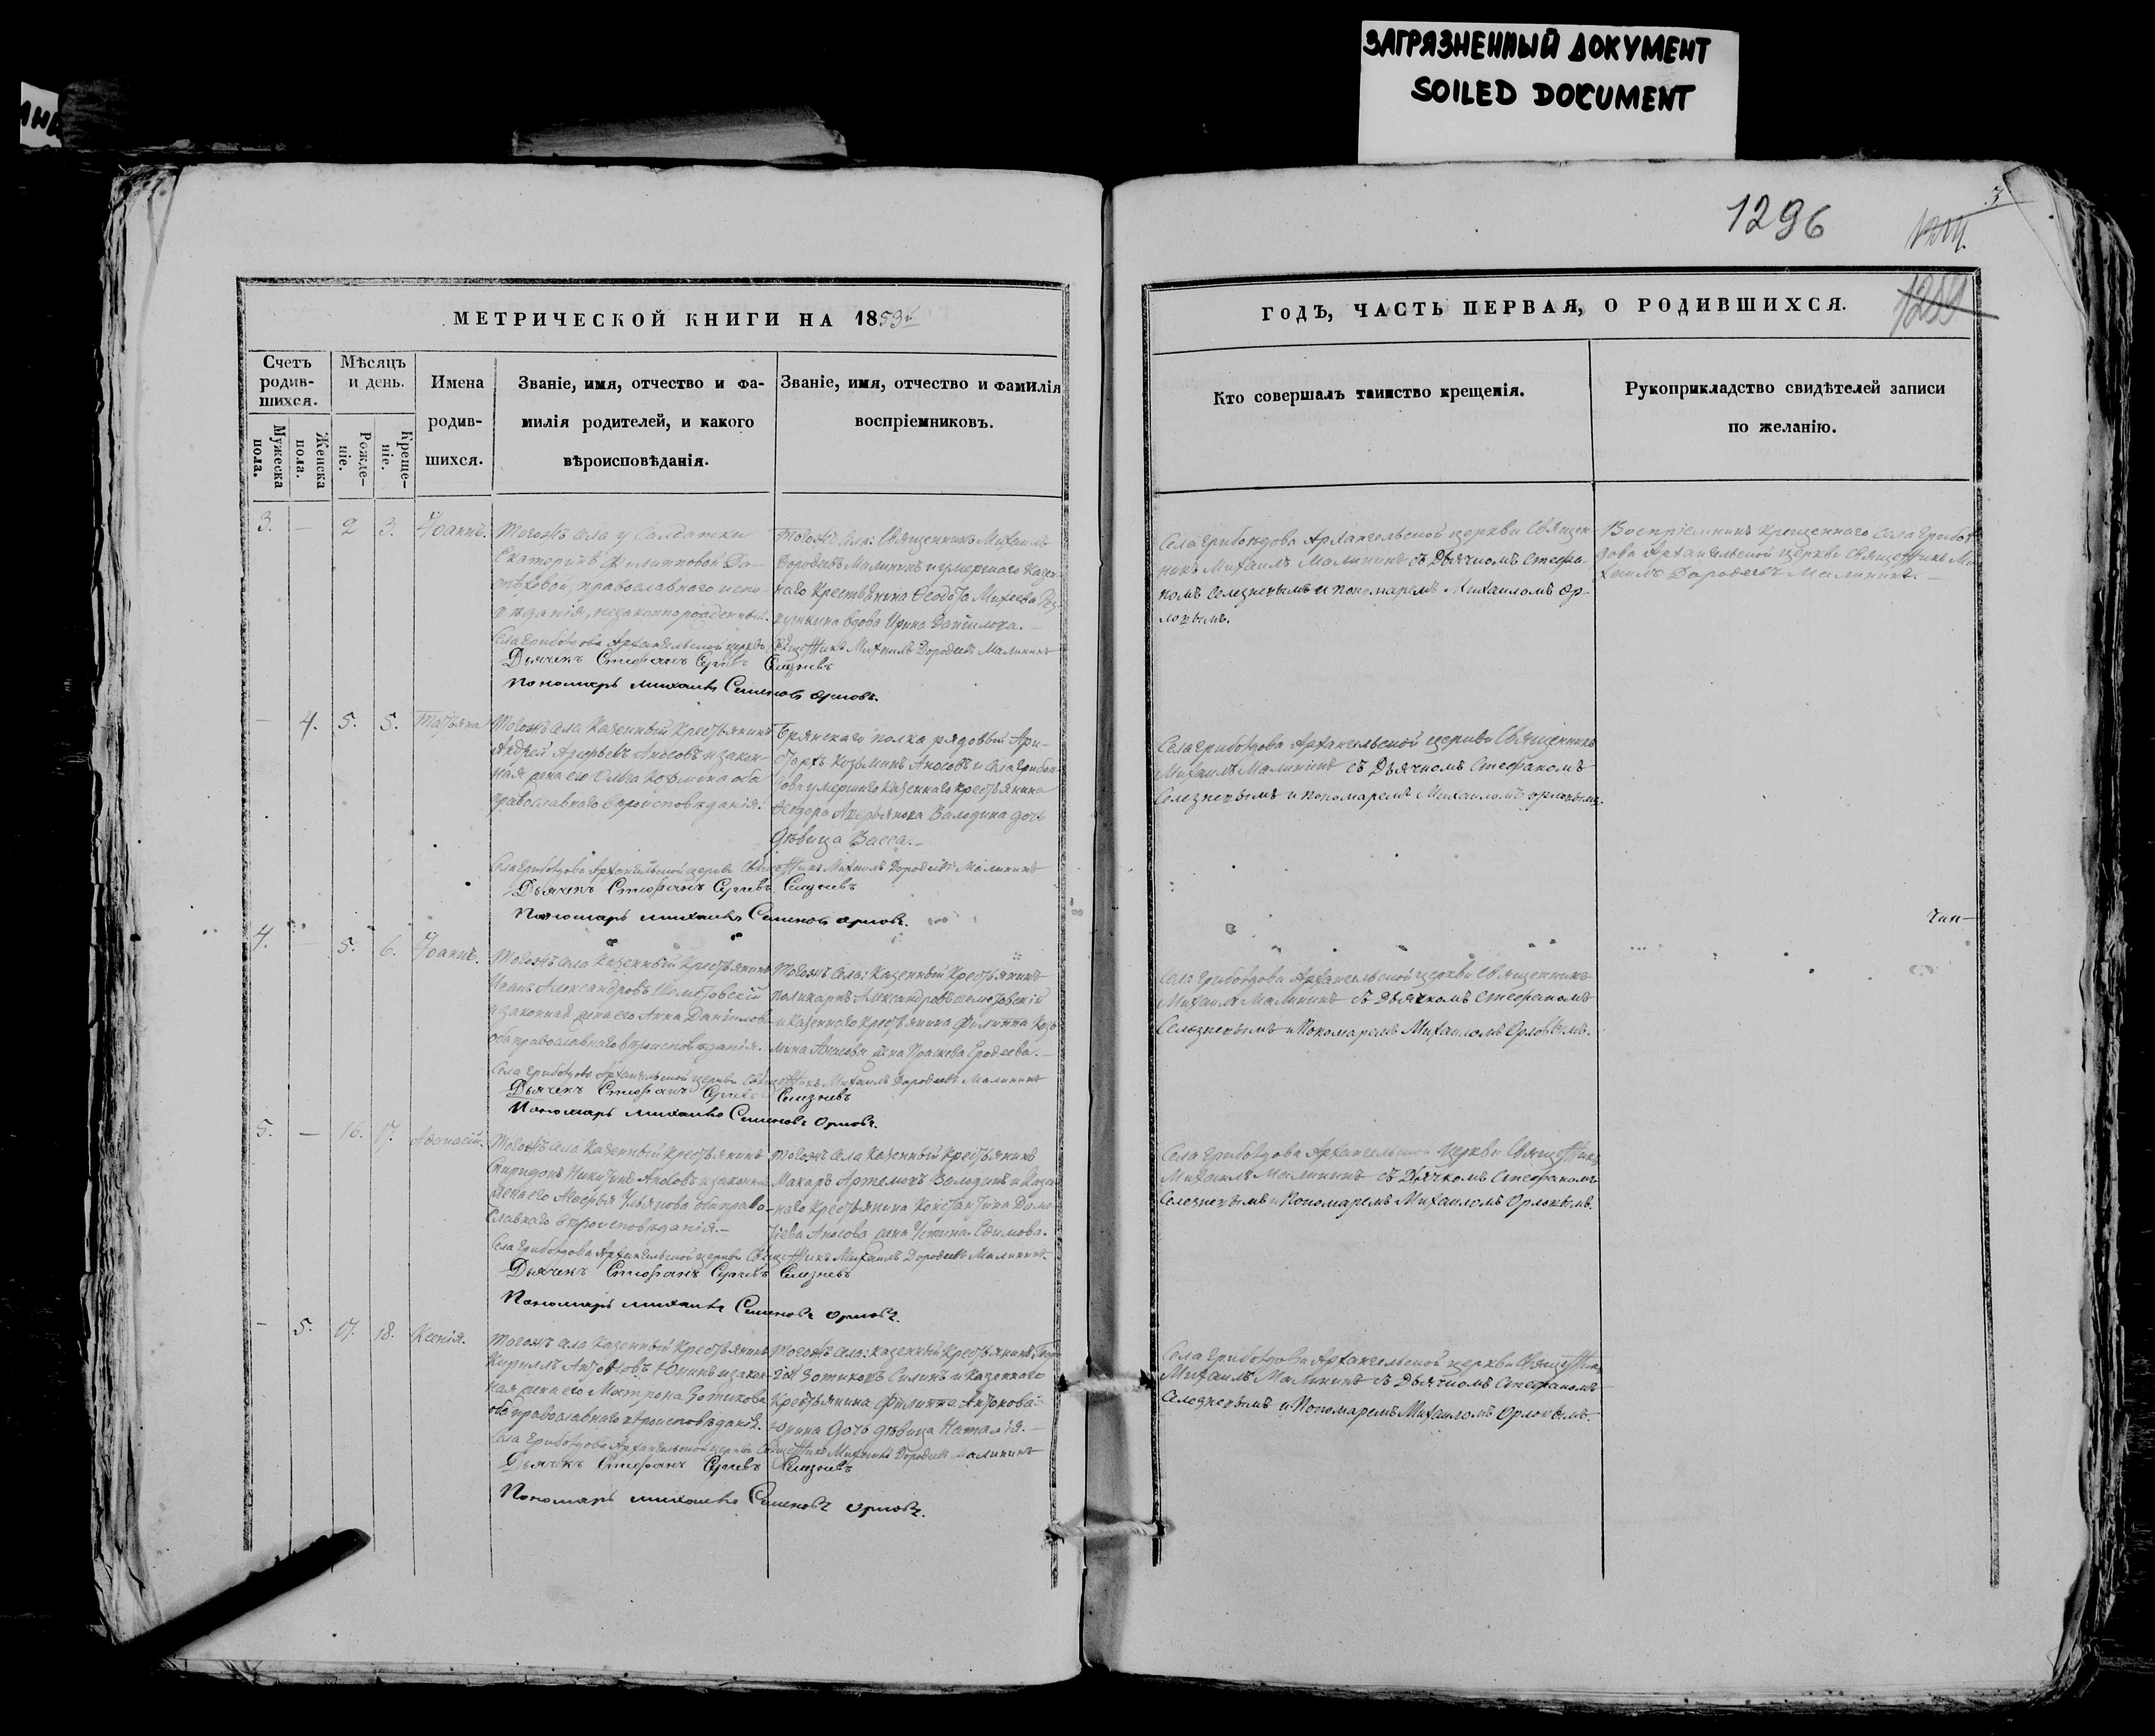 ЗАГРЯЗНЕННЫЙ ДОКУМЕНТ
SOILED DOCUMENT
1296
3
1250
МЕТРИЧЕСКОЙ КНИГИ НА 1853й
ГОДЪ, ЧАСТЬ ПЕРВАЯ, О РОДИВШИХСЯ.
Счетъ родив-шихся.
Мужеска пола.
Женска пола.
Мѣсяцъ и день.
Рожде-ніе.
Креще-ніе.
Имена
родив-
шихся.
Званіе, имя, отчество и фа-
милія родителей, и какого
вѣроисповѣданія.
Званіе, имя, отчество и фамилія
воспріемниковъ.
Кто совершалъ таинство крещенія.
Рукоприкладство свидѣтелей записи
по желанію.
3. — 2 3. Іоаннъ.
Тогожъ села у Солдатки
Екатерины Филипповой
православнаго испо-
вѣданія, незаконнорожденный.
Тогожъ села: Священникъ Михаилъ
Дорофеевъ Малининъ и умершаго Казен-
наго Крестьянина Феодота Михеева
вдова Ирина Данилова.—
Села Грибоѣдова Архангельской церкви Священникъ Михаилъ Дорофеевъ Малининъ
Дьячекъ Стефанъ Сергѣевъ Селезневъ
Пономарь Михаилъ Семеновъ Орловъ.
Села Грибоѣдова Архангельской церкви Священ-
никъ Михаилъ Малининъ съ Дьячкомъ Стефа-
номъ Селезневымъ и пономаремъ Михаиломъ Ор-
ловымъ.
Воспріемникъ Крещеннаго Села Грибоѣ-
дова Архангельской церкви Священникъ Ми-
хаилъ Дорофеевъ Малининъ.—
— 4. 5. 5. Татьяна
Тогожъ села Казенный Крестьянинъ
Андрей Аносовъ и закон-
ная жена его Ольга Козьмина оба
православнаго вѣроисповѣданія.
Брянскаго полка рядовый Ари-
стархъ Козьминъ Аносовъ и села Грибоѣ-
дова умершаго Казеннаго крестьянина
Феодора Аверьянова Володина дочь
дѣвица Васса.—
Села Грибоѣдова Архангельской церкви Священникъ Михаилъ Дорофеевъ Малининъ
Дьячекъ Стефанъ Сергѣевъ Селезневъ
Пономарь Михаилъ Семеновъ Орловъ.
Села Грибоѣдова Архангельской церкви Священникъ
Михаилъ Малининъ съ Дьячкомъ Стефаномъ
Селезневымъ и пономаремъ Михаиломъ Орловымъ.
4. — 5. 6. Іоаннъ.
Тогожъ села Казенный Крестьянинъ
Иванъ Александровъ Шеметовскій
и законная жена его Анна Данилова
оба православнаго вѣроисповѣданія.
Тогожъ села: Казенный Крестьянинъ
Поликарпъ Александровъ Шеметовскій
и Казеннаго Крестьянина Филиппа Козь-
мина Аносова жена Прасковья Ерофеева.—
Села Грибоѣдова Архангельской церкви Священникъ Михаилъ Дорофеевъ Малининъ
Дьячекъ Стефанъ Сергѣевъ Селезневъ
Пономарь Михаилъ Семеновъ Орловъ.
Села Грибоѣдова Архангельской церкви Священникъ
Михаилъ Малининъ съ Дьячкомъ Стефаномъ
Селезневымъ и Пономаремъ Михаиломъ Орловымъ.
5. — 16. 17. Афанасій.
Тогожъ села Казенный Крестьянинъ
Спиридонъ Никитинъ Аносовъ и законная
жена его Марфа Ульянова оба право-
славнаго вѣроисповѣданія.—
Тогожъ села Казенный Крестьянинъ
Макаръ Артемовъ Володинъ и Казен-
наго Крестьянина Константина
Аносова жена Устина Ефимова.
Села Грибоѣдова Архангельской церкви Священникъ Михаилъ Дорофеевъ Малининъ
Дьячекъ Стефанъ Сергѣевъ Селезневъ
Пономарь Михаилъ Семеновъ Орловъ.
Села Грибоѣдова Архангельской церкви Священникъ
Михаилъ Малининъ съ Дьячкомъ Стефаномъ
Селезневымъ и Пономаремъ Михаиломъ Орловымъ.
— 5. 17. 18. Ксенія.
Тогожъ села Казенный Крестьянинъ
Кириллъ Антоновъ Юнинъ и закон-
ная жена его Матрона Зотикова
оба православнаго вѣроисповѣданія.
Тогожъ села: казенный Крестьянинъ
Зотиковъ Силинъ и Казеннаго
Крестьянина Филиппа Антонова
Юнина дочь дѣвица Наталія.—
Села Грибоѣдова Архангельской церкви Священникъ Михаилъ Дорофеевъ Малининъ
Дьячекъ Стефанъ Сергѣевъ Селезневъ
Пономарь Михаилъ Семеновъ Орловъ.
Села Грибоѣдова Архангельской церкви Священникъ
Михаилъ Малининъ съ Дьячкомъ Стефаномъ
Селезневымъ и Пономаремъ Михаиломъ Орловымъ.